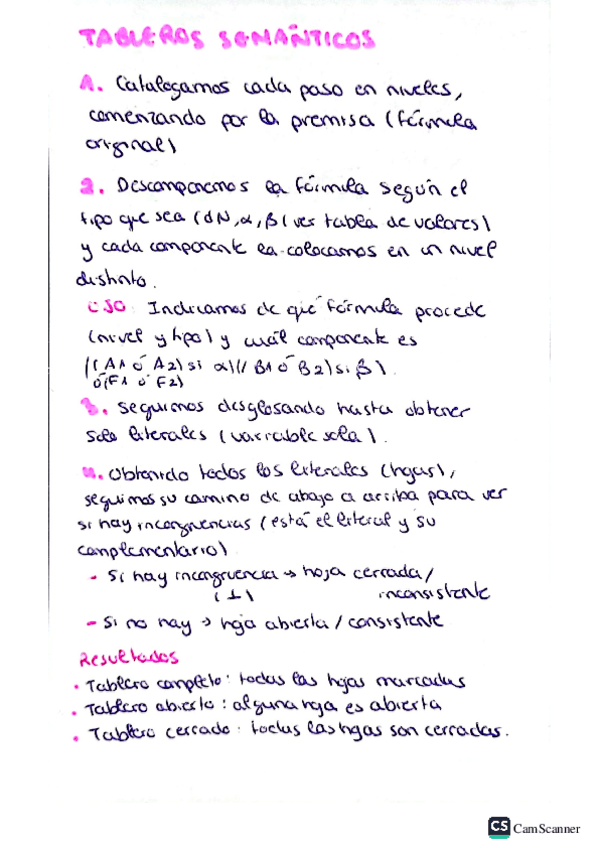 TABLEROS SEMÁNTICOS
1. Catalogamos cada paso en niveles,
comenzando por la premisa (fórmula
original)
2. Descomponemos la fórmula según el
tipo que sea (dN, α, β (ver tabla de valores)
y cada componente la colocamos en un nivel
distinto.
OJO: Indicamos de qué fórmula procede
(nivel y tipo) y cuál componente es
((A1 ó A2) si α)(( B1 ó B2) si β).
ó (F1 ó F2)
3. Seguimos desglosando hasta obtener
solo literales (variable sola).
4. Obtenido todos los literales (hojas),
seguimos su camino de abajo a arriba para ver
si hay incongruencias (está el literal y su
complementario)
- Si hay incongruencia → hoja cerrada /
(⊥) inconsistente
- Si no hay → hoja abierta / consistente
Resultados
• Tablero completo: todas las hojas marcadas
• Tablero abierto: alguna hoja es abierta
• Tablero cerrado: todas las hojas son cerradas.
CS CamScanner